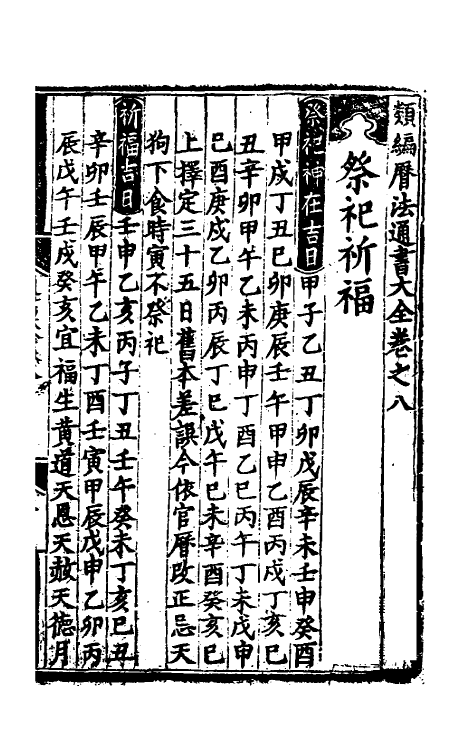 類編曆法通書大全卷之八
祭祀祈福
祭祀神在吉日甲子乙丑丁卯戊辰辛未壬申癸酉
甲戌丁丑巳卯庚辰壬午甲申乙酉丙戌丁亥巳
丑辛卯甲午乙未丙申丁酉乙巳丙午丁未戊申
巳酉庚戌乙卯丙辰丁巳戊午巳未辛酉癸亥巳
上擇定三十五日舊本差誤今依官曆改正忌天
狗下食時寅不祭祀
祈福吉日壬申乙亥丙午丁丑壬午癸未丁亥巳丑
辛卯壬辰甲午乙未丁酉壬寅甲辰戊申乙卯丙
辰戊午壬戌癸亥宜福生黃道天恩天赦天德月